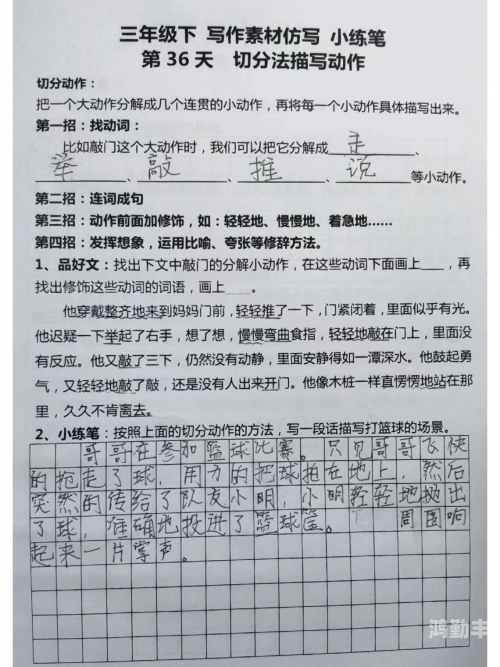 三年级下 写作素材仿写 小练笔
第 36 天 切分法描写动作
切分动作：
把一个大动作分解成几个连贯的小动作，再将每一个小动作具体描写出来。
第一招：找动词：
比如敲门这个大动作时，我们可以把它分解成 走 、
举 、 敲 、 推 、 说 等小动作。
第二招：连词成句
第三招：动作前面加修饰，如：轻轻地、慢慢地、着急地……
第四招：发挥想象，运用比喻、夸张等修辞方法。
1、品好文：找出下文中敲门的分解小动作，在这些动词下面画上____，再
找出修饰这些动词的词语，画上____。
他穿戴整齐地来到妈妈门前，轻轻推了一下，门紧闭着，里面似乎有光。
他迟疑一下举起了右手，想了想，慢慢弯曲食指，轻轻地敲在门上，里面没
有反应。他又敲了三下，仍然没有动静，里面安静得如一潭深水。他鼓起勇
气，又轻轻地敲了敲，还是没有人出来开门。他像木桩一样直愣愣地站在那
里，久久不肯离去。
2、小练笔：按照上面的切分动作的方法，写一段话描写打篮球的场景。
哥哥在参加篮球比赛。只见哥哥飞快
的抱走了球，用力的把球拍在地上，然后
突然的传给了队友小明，小明轻轻地抛出
了球，准确地投进了篮球筐。 周围响
起来一片掌声。
鸿勤丰